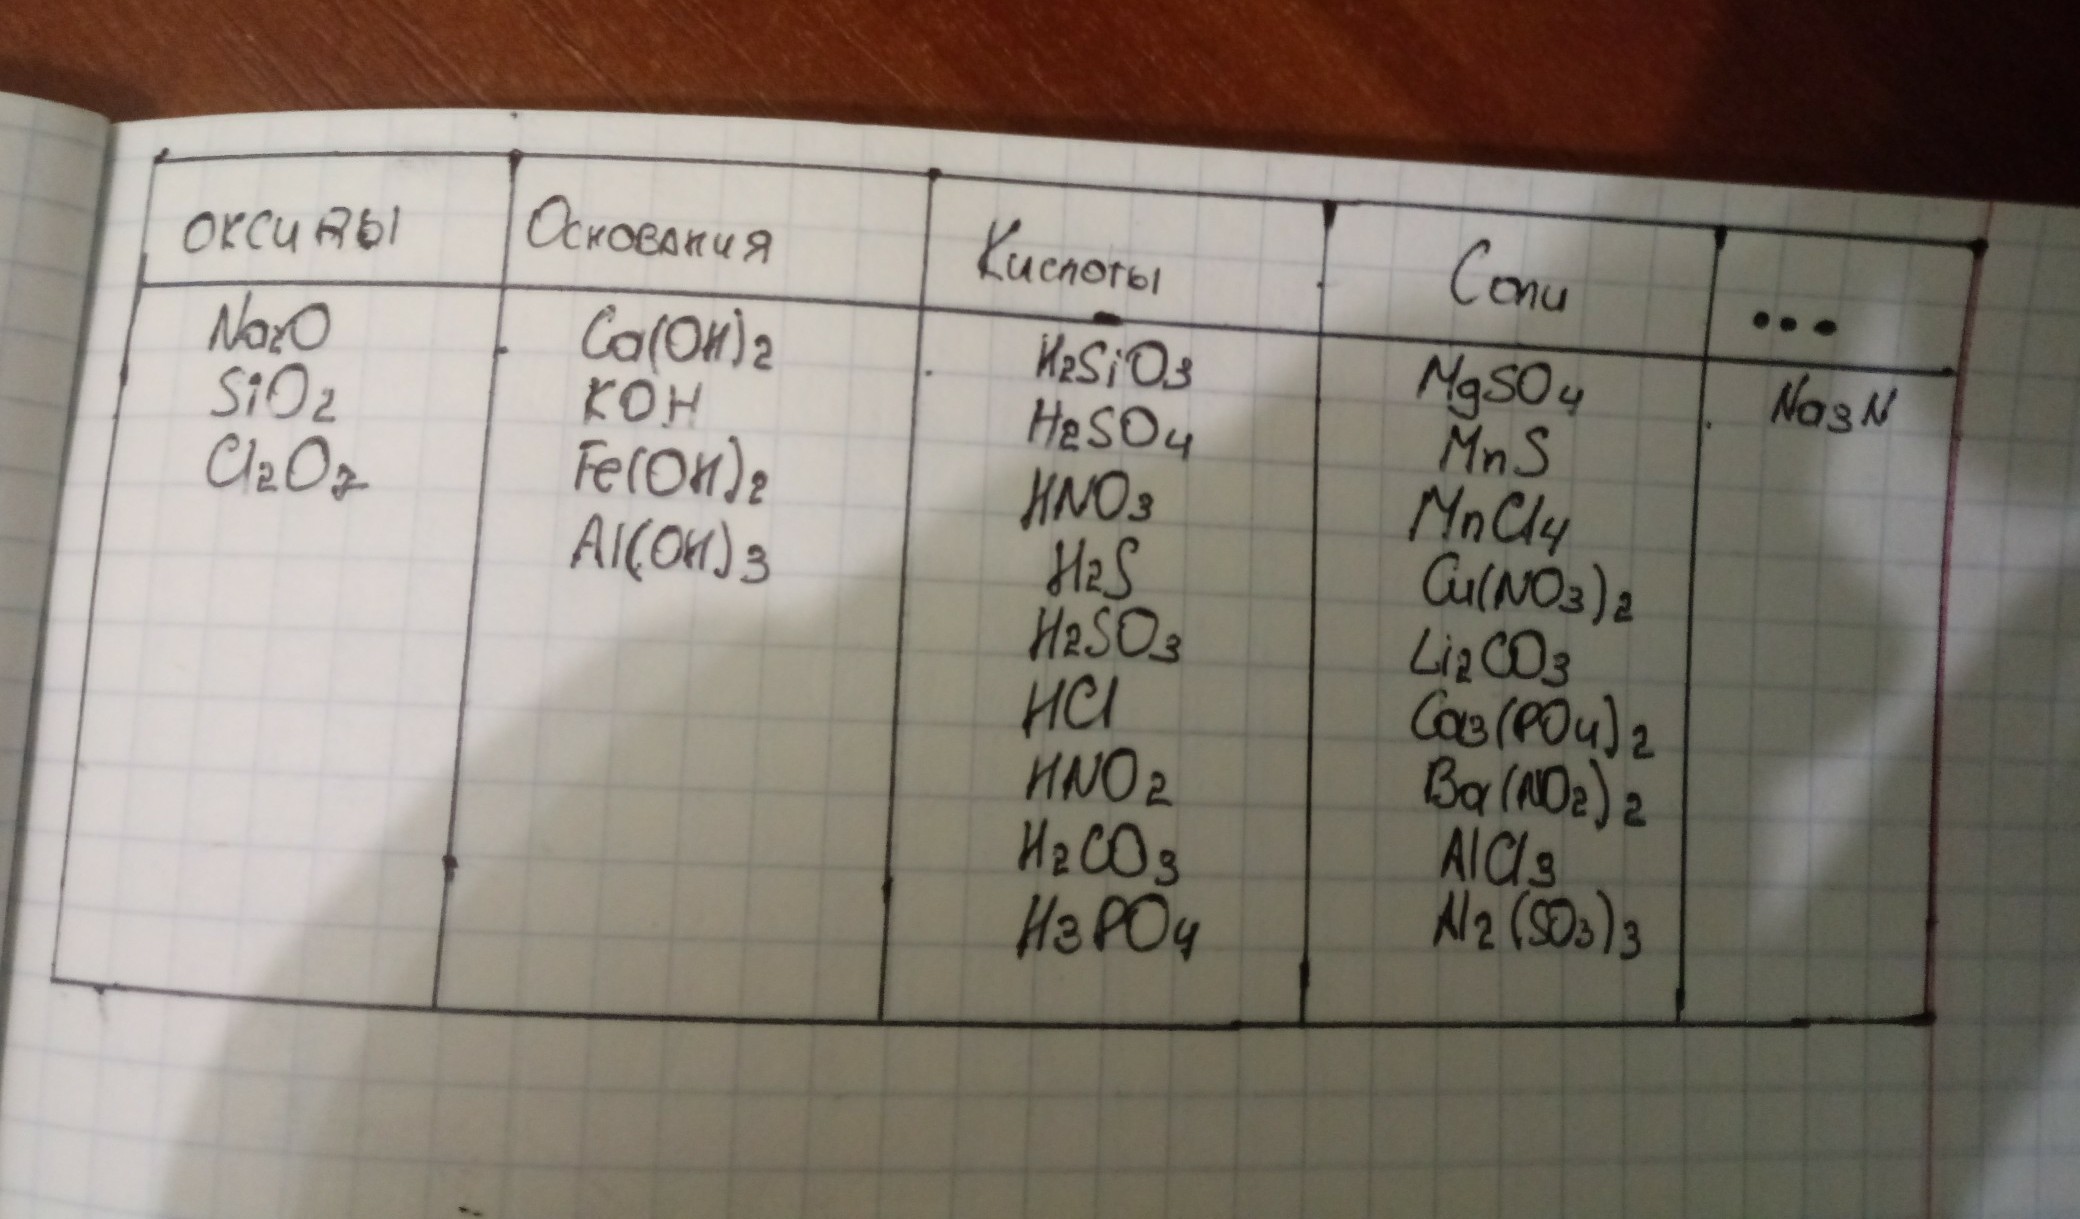 оксиды Основания Кислоты Соли ...
Na2O Ca(OH)2 H2SiO3 MgSO4 Na3N
SiO2 KOH H2SO4 MnS
Cl2O7 Fe(OH)2 HNO3 MnCl4
Al(OH)3 H2S Cu(NO3)2
H2SO3 Li2CO3
HCl Ca3(PO4)2
HNO2 Ba(NO2)2
H2CO3 AlCl3
H3PO4 Al2(SO3)3